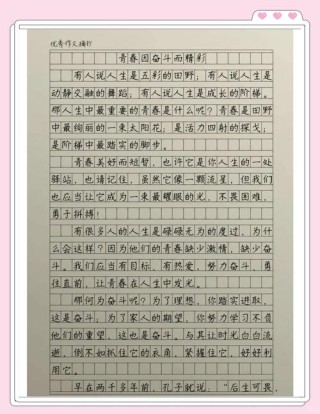 优秀作文摘抄
青春因奋斗而精彩
有人说人生是五彩的田野；有人说人生是
动静交融的舞蹈；有人说人生是成长的阶梯。
那人生中最重要的青春是什么呢？青春是田野
中最绚丽的一束太阳花；是活力四射的探戈；
是阶梯中最踏实的脚步。
青春美好而短暂，也许它是你人生的一处
驿站，也请记住，虽然它像一颗流星，但我们
也应当让它成为一束最耀眼的光，不畏困难，
勇于拼搏！
有很多人的人生是碌碌无为的度过，为什
么会这样？因为他们的青春缺少激情，缺少奋
斗。我们应当有目标，有热爱，努力奋斗，勇
往直前，让青春在人生中发光。
那何为奋斗呢？为了理想，你踏实进取，
这是奋斗；为了家人的期望，你努力学习不负
他们的重望，这也是奋斗。与其让时光白白流
逝，倒不如抓住它的衣角，紧握住它，好好利
用它。
早在两千多年前，孔子就说，“后生可畏，